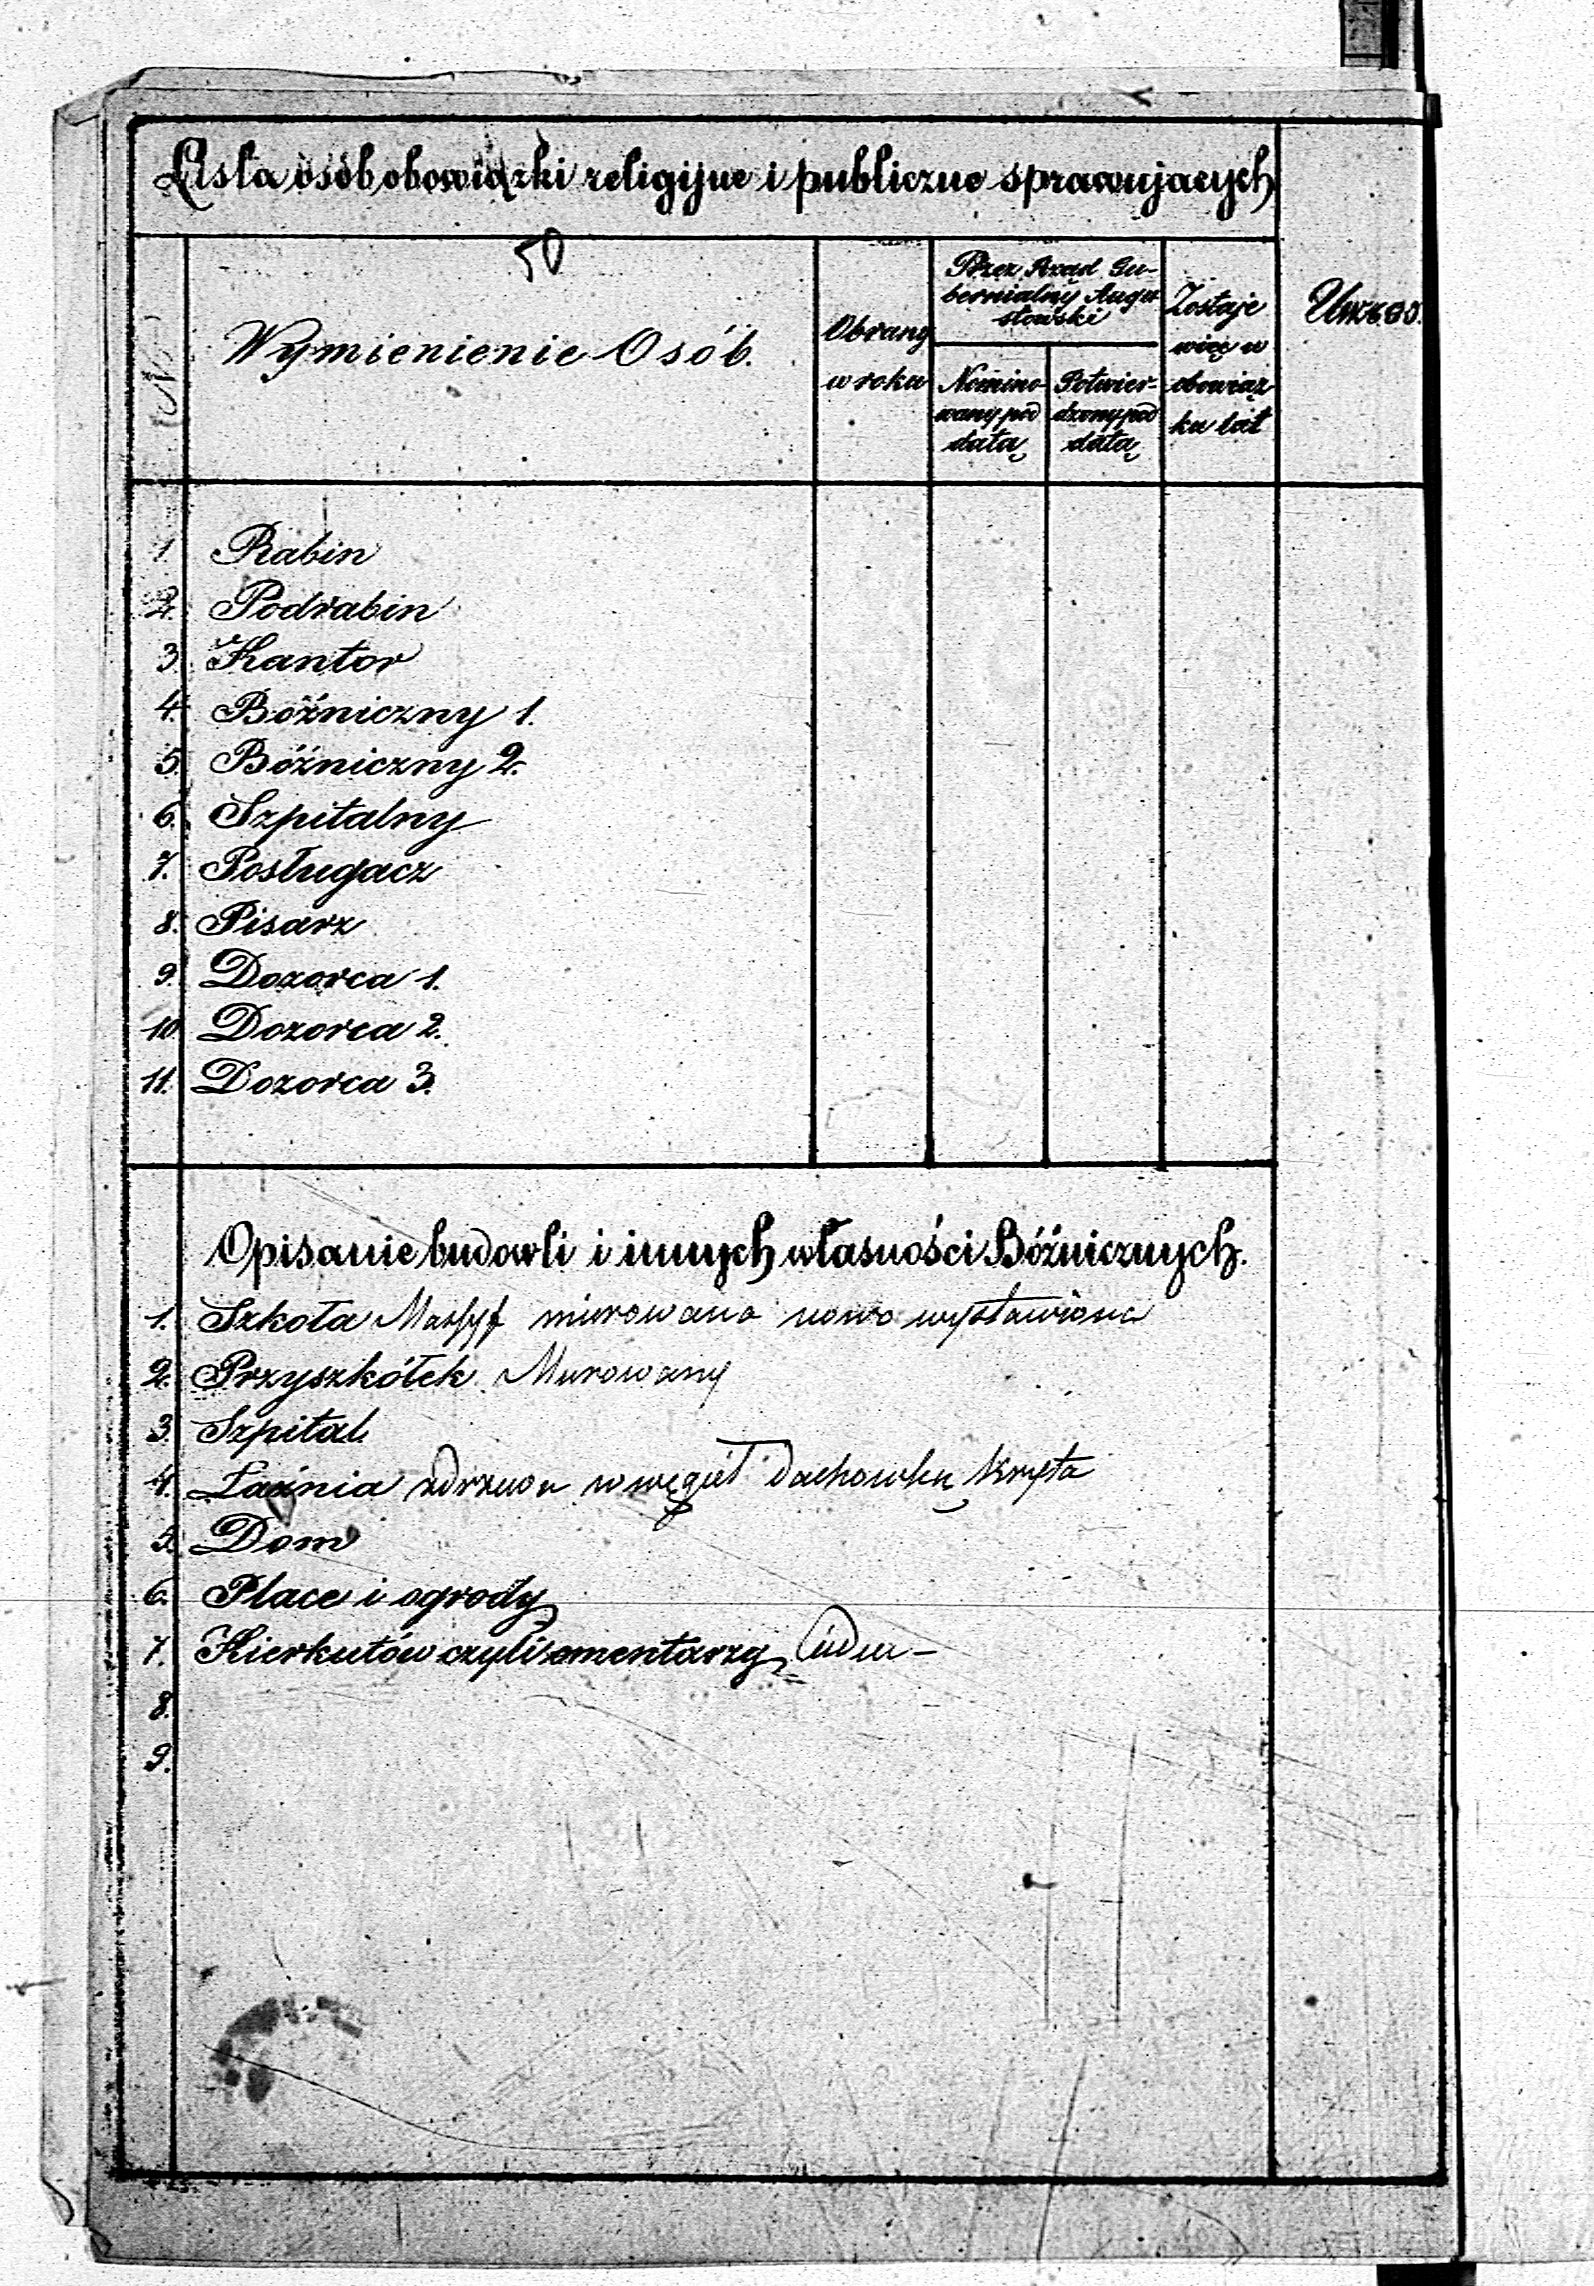 Lista osób obowiązki religijne i publiczne sprawujących
50
N.
Wymienienie Osób.
Obrany
w roku
Przez Rząd Gu-
bernialny Augu
stowski
Nomino-
wany pod
datą
Potwier-
dzony pod
datą
Zostaje
więc w
obowiąz
ku lat
1. Rabin
2. Podrabin
3. Kantor
4. Bóźniczny 1.
5. Bóźniczny 2.
6. Szpitalny
7. Posługacz
8. Pisarz
9. Dozorca 1.
10. Dozorca 2.
11. Dozorca 3.
Opisanie budowli i innych własności Bóźnicznych.
1. Szkoła Massyf murowana nowo wystawiona
2. Przyszkółek Murowany
3. Szpital.
4. Łaźnia zdrzewa w węgieł Dachowką kryta
5. Dom
6. Place i ogrody
7. Kierkutów czyli cmentarzy
8.
9.